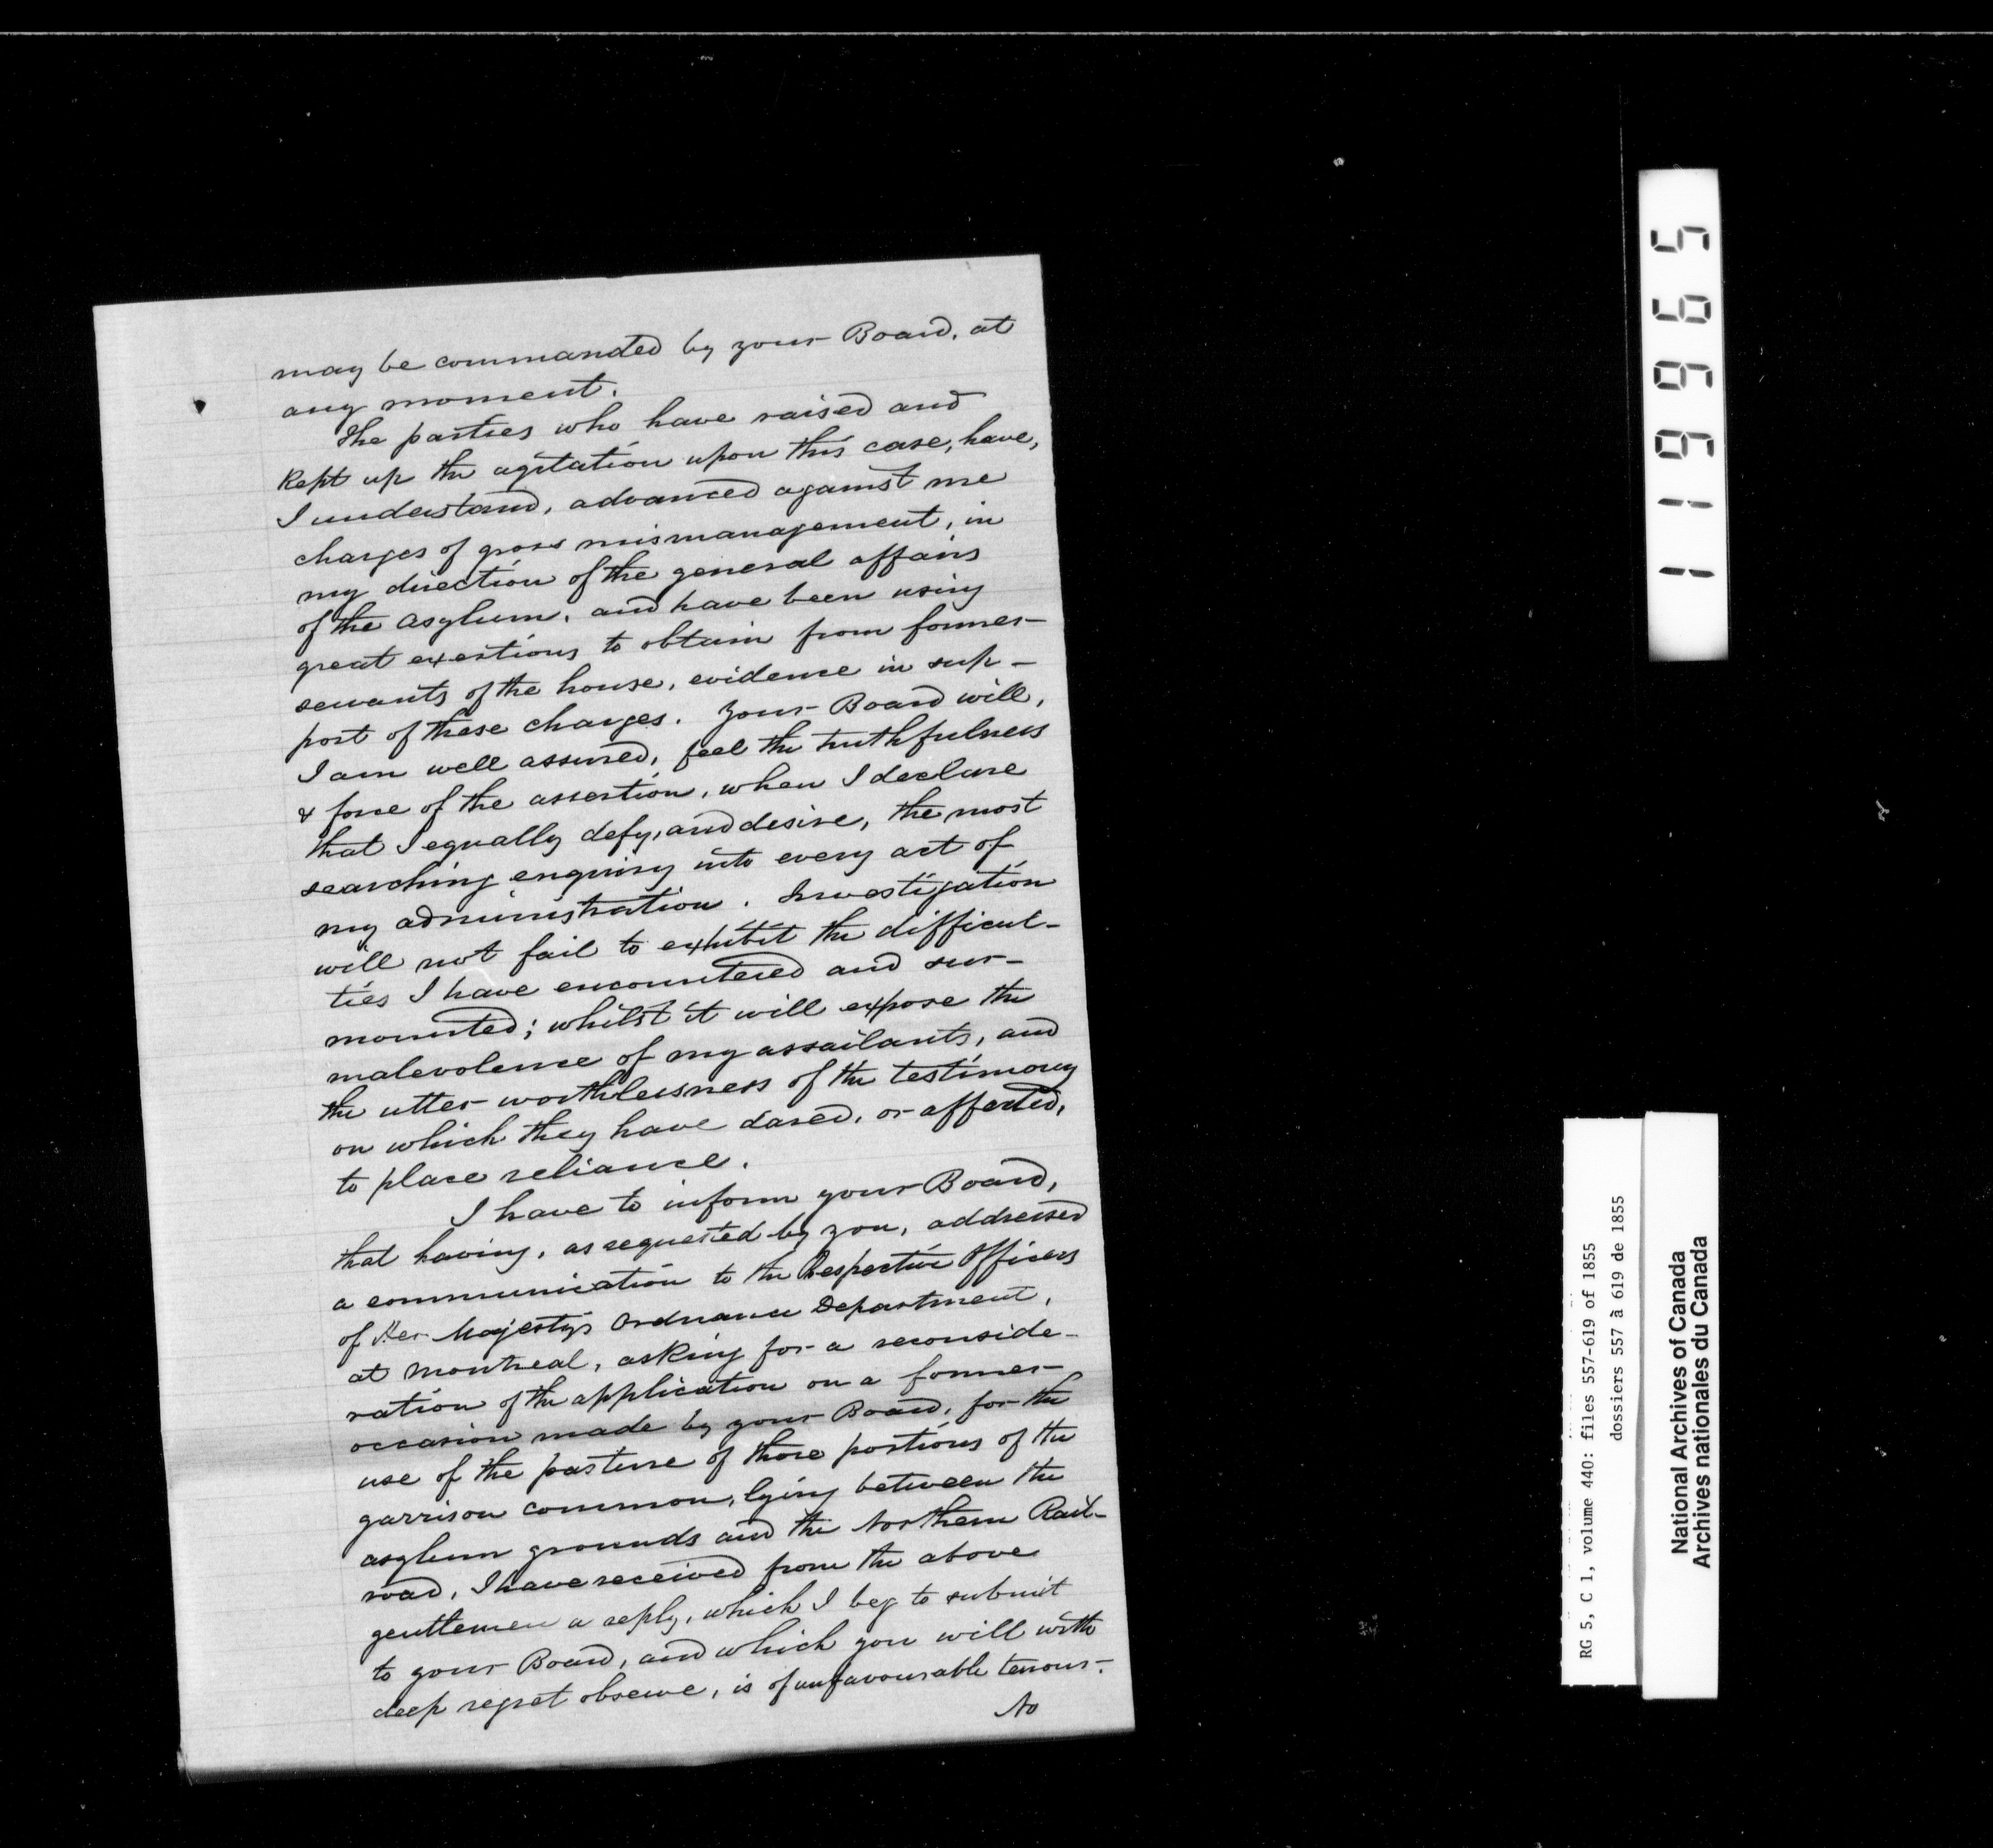 may be commanded by your Board, at
any moment.
The parties who have raised and
Kept up the agitation upon this case, have,
I understand, advanced against me
charges of gross mismanagement, in
my direction of the general affairs
of the Asylum, and have been using
great exertions to obtain from former
servants of the house, evidence in sup-
port of these charges. Your Board will,
I am well assured, feel the truthfulness
& force of the assertion, when I declare
that I equally defy, and desire, the most
searching enquiry into every act of
my administration. Investigation
will not fail to exhibit the difficul-
ties I have encountered and sur-
mounted; whilst it will expose the
malevolence of my assailants, and
the utter worthlessness of the testimony
on which they have dared, or affected,
to place reliance.
I have to inform your Board,
that having, as requested by you, addressed
a communication to the Respective Officers
of Her Majesty's Ordnance Department,
at Montreal, asking for a reconside-
ration of the application on a former
occasion made by your Board, for the
use of the pasture of those portions of the
garrison common, lying between the
asylum grounds and the Northern Rail-
road, I have received from the above
gentlemen a reply, which I beg to submit
to your Board, and which you will with
deep regret observe, is of unfavourable tenour.
No
119965
RG 5, C 1, volume 440: files 557-619 of 1855
dossiers 557 à 619 de 1855
National Archives of Canada
Archives nationales du Canada